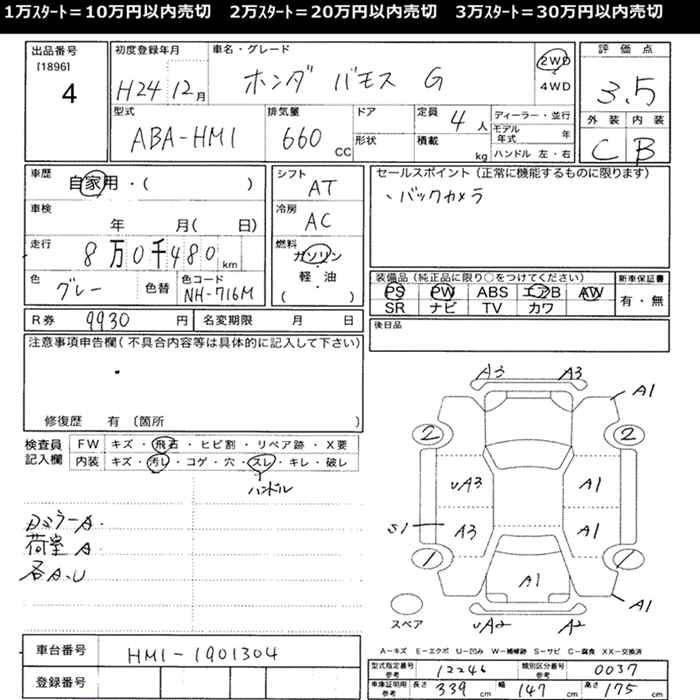 1万スタート=10万円以内売切 2万スタート=20万円以内売切 3万スタート=30万円以内売切
出品番号
[1896]
4
初度登録年月
H24 12月
車名・グレード
ホンダ バモス G
2WD
4WD
評価点
3.5
外装 内装
C B
型式
ABA-HM1
排気量
660 CC
ドア
形状
定員
4 人
積載
kg
ディーラー・並行
モデル年式 年
ハンドル 左・右
車歴
自家用・( )
車検
年 月( 日)
走行
8万0千480 km
色
グレー
色替
色コード
NH-716M
シフト
AT
冷房
AC
燃料
ガソリン
・
軽・油
( )
セールスポイント(正常に機能するものに限ります)
、バックカメラ
装備品(純正品に限り○をつけてください)
PS PW ABS エアB AW
SR ナビ TV カワ
新車保証書
有・無
R券 9930 円
名変期限 月 日
後日品
注意事項申告欄(不具合内容等は具体的に記入して下さい)
修復歴 有 (箇所 )
検査員記入欄
FW キズ・飛石・ヒビ割・リペア跡・X要
内装 キズ・汚レ・コゲ・穴・スレ・キレ・破レ
ハンドル
荷室 A
各A.U
A3 A3
A1
2 2
UA3 A1
S1 A3 A1
1 1
A1
A1
UA2 A2
スペア
A-キズ E-エクボ U-凹み W-補修跡 S-サビ C-腐食 XX-交換済
車台番号
HM1-1901304
登録番号
型式指定番号参考
12246
類別区分番号参考
0037
車庫証明用参考
長さ 339 cm
幅 147 cm
高さ 175 cm